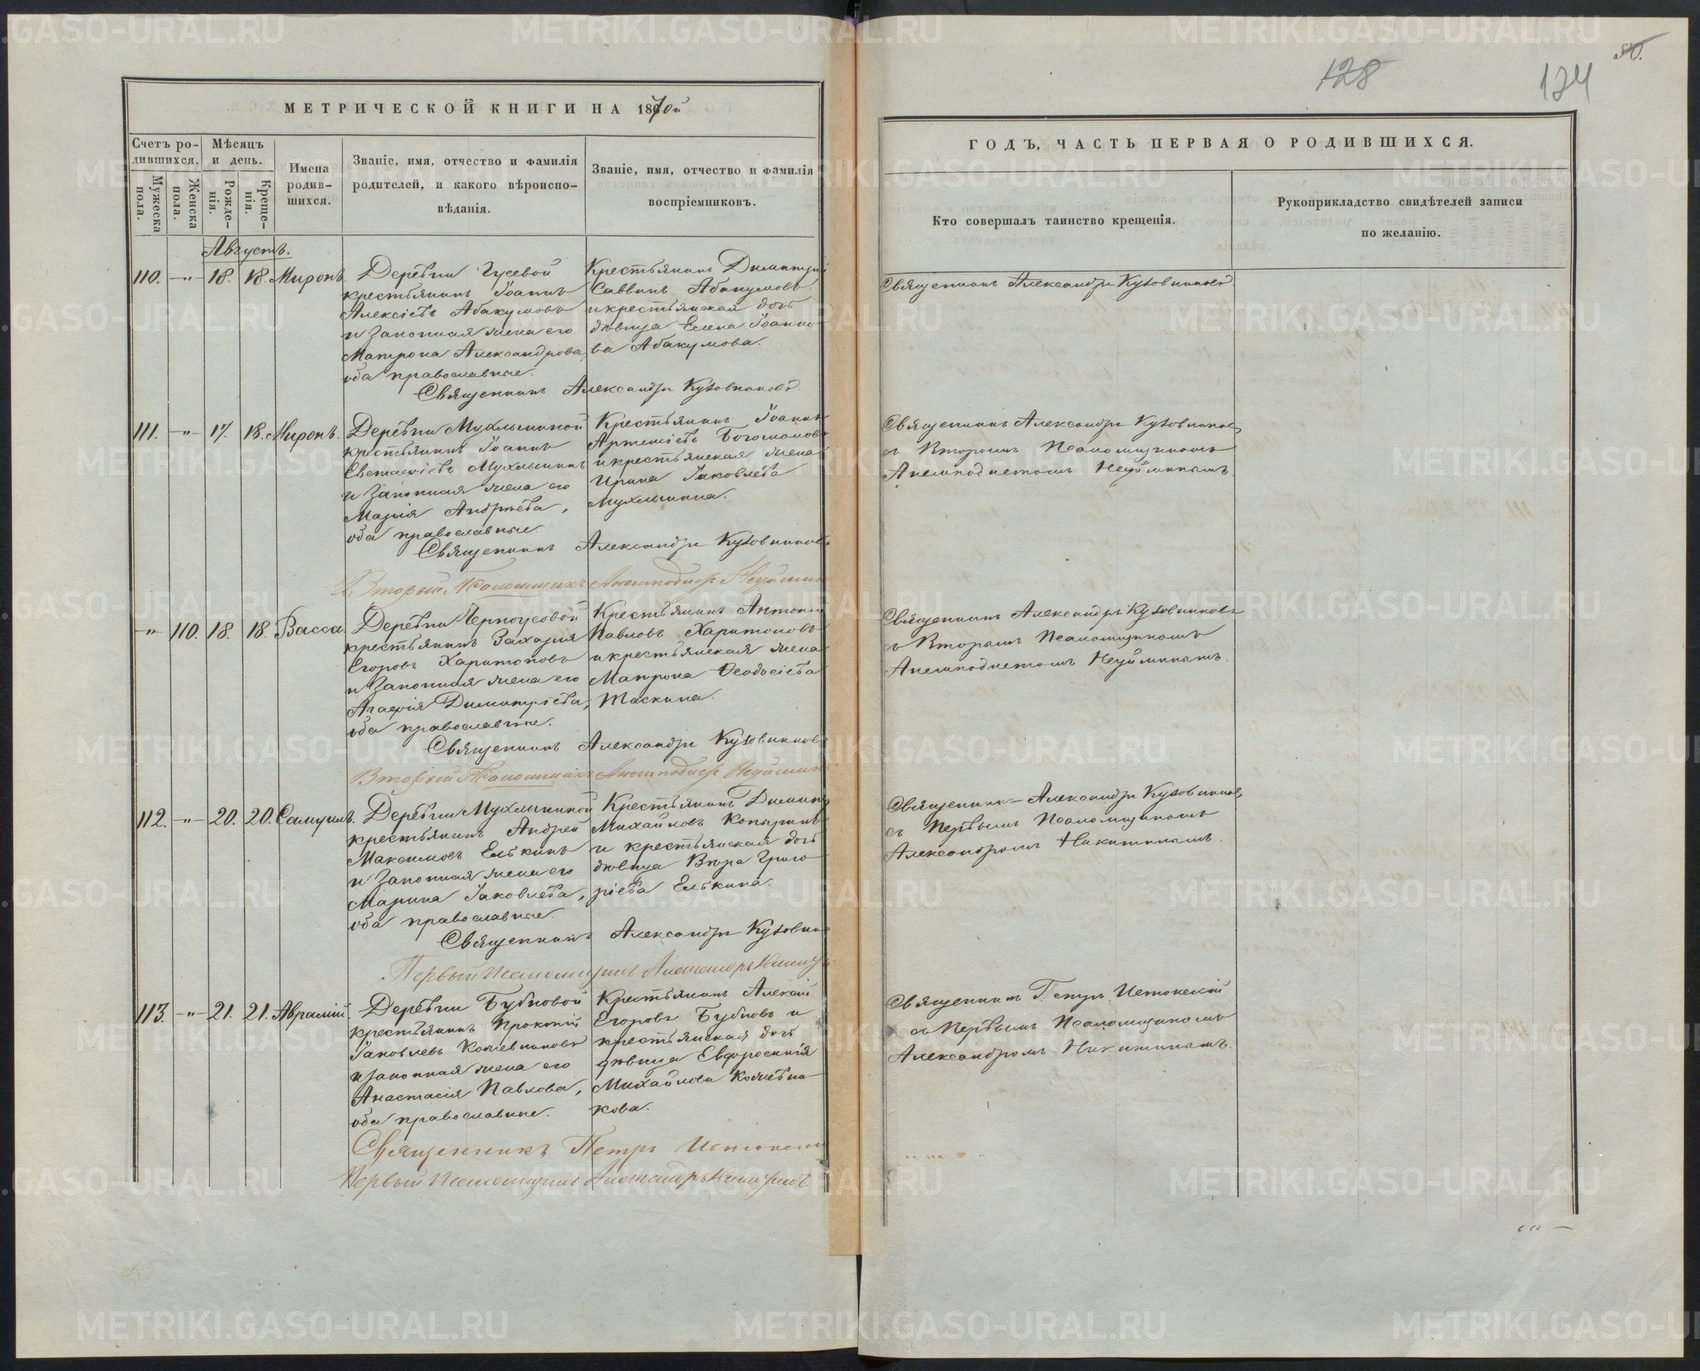 МЕТРИЧЕСКОЙ КНИГИ НА 1870й
Счетъ родившихся.
Мужеска пола.
Женска пола.
Мѣсяцъ и день.
Рожденія.
Крещенія.
Имена родившихся.
Званіе, имя, отчество и фамилія родителей, и какого вѣроисповѣданія.
Званіе, имя, отчество и фамилія воспріемниковъ.
Августъ.
110. -"- 18. 18. Миронъ
Деревни Гусевой
крестьянинъ Іоаннъ
Алексіевъ Абакумовъ
и законная жена его
Матрона Александрова,
оба православные.
Крестьянинъ Димитрій
Саввинъ Абакумовъ
и крестьянская дочь
дѣвица Елена Іоанно-
ва Абакумова.
Священникъ Александръ Кузовниковъ
111. -"- 17. 18. Миронъ.
Деревни Мухлыниной
крестьянинъ Іоаннъ
Евстафіевъ Мухлынинъ
и законная жена его
Марія Андреева,
оба православные
Крестьянинъ Іоаннъ
Артеміевъ Богомоловъ
и крестьянская жена
Ирина Іаковлева
Мухлынина.
Священникъ Александръ Кузовниковъ
Второй Псаломщикъ Анемподистъ Неуйминъ
-"- 110. 18. 18. Васса
Деревни Черноусовой
крестьянинъ Захарія
Егоровъ Харитоновъ
и законная жена его
Агафія Димитріева,
оба православные.
Крестьянинъ Антоній
Павловъ Харитоновъ
и крестьянская жена
Матрона Феодосіева
Таскина.
Священникъ Александръ Кузовниковъ
Второй Псаломщикъ Анемподистъ Неуйминъ
112. -"- 20. 20. Самуилъ.
Деревни Мухлыниной
крестьянинъ Андрей
Максимовъ Елькинъ
и законная жена его
Марина Іаковлева,
оба православные
Крестьянинъ Димит
Михайловъ Копыринъ
и крестьянская дочь
дѣвица Вѣра Григо-
ріева Елькина.
Священникъ Александръ Кузовник
Первый Псаломщикъ Александръ Никит
113. -"- 21. 21. Аврамій
Деревни Бубновой
крестьянинъ Прокопій
Іаковлевъ Кожевниковъ
и законная жена его
Анастасія Павлова,
оба православные.
Крестьянинъ Алексій
Егоровъ Бубновъ и
крестьянская дочь
дѣвица Евфросинія
Михайлова Кожевни-
кова.
Священникъ Петръ Истокскій
Первый Псаломщикъ Александръ Никитинъ
128
134
ГОДЪ, ЧАСТЬ ПЕРВАЯ О РОДИВШИХСЯ.
Кто совершалъ таинство крещенія.
Рукоприкладство свидѣтелей записи по желанію.
Священникъ Александръ Кузовниковъ
Священникъ Александръ Кузовниковъ,
съ Вторымъ Псаломщикомъ
Анемподистомъ Неуйминымъ.
Священникъ Александръ Кузовниковъ
съ Вторымъ Псаломщикомъ
Анемподистомъ Неуйминымъ.
Священникъ Александръ Кузовниковъ,
съ Первымъ Псаломщикомъ
Александромъ Никитинымъ.
Священникъ Петръ Истокскій
съ Первымъ Псаломщикомъ
Александромъ Никитинымъ.
METRIKI.GASO-URAL.RU